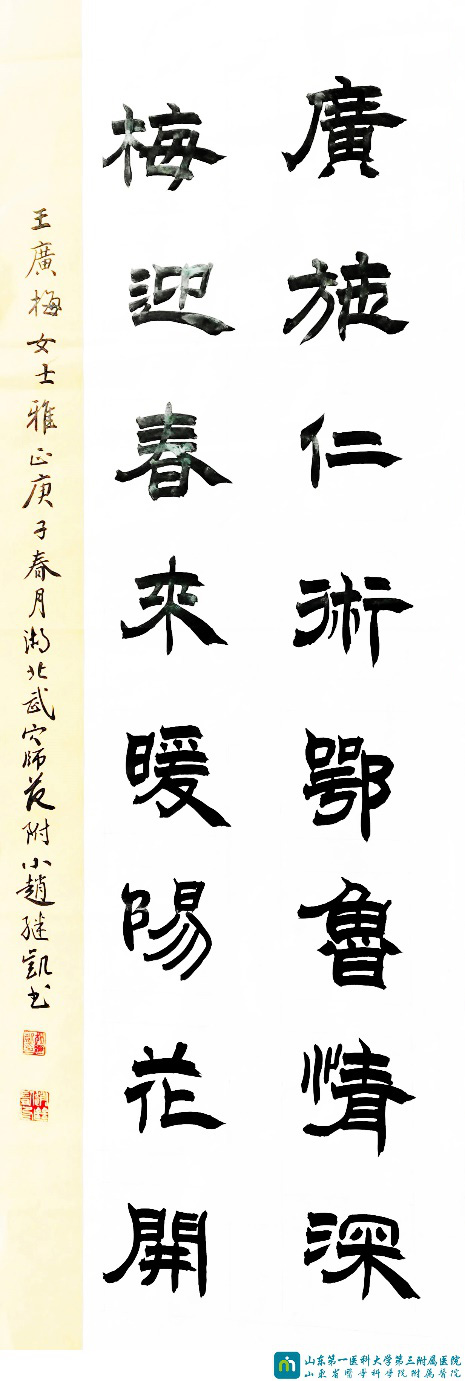 廣施仁術鄂魯情深
梅迎春來暖陽花開
王廣梅女士雅正庚子春月湖北武穴師范附小趙繼凱書
山东第一医科大学第三附属医院
山东省医学科学院附属医院